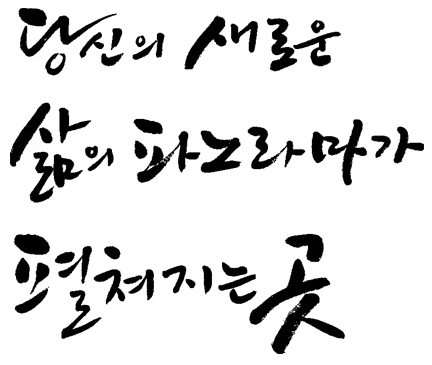 당신의 새로운
삶의 파노라마가
펼쳐지는 곳